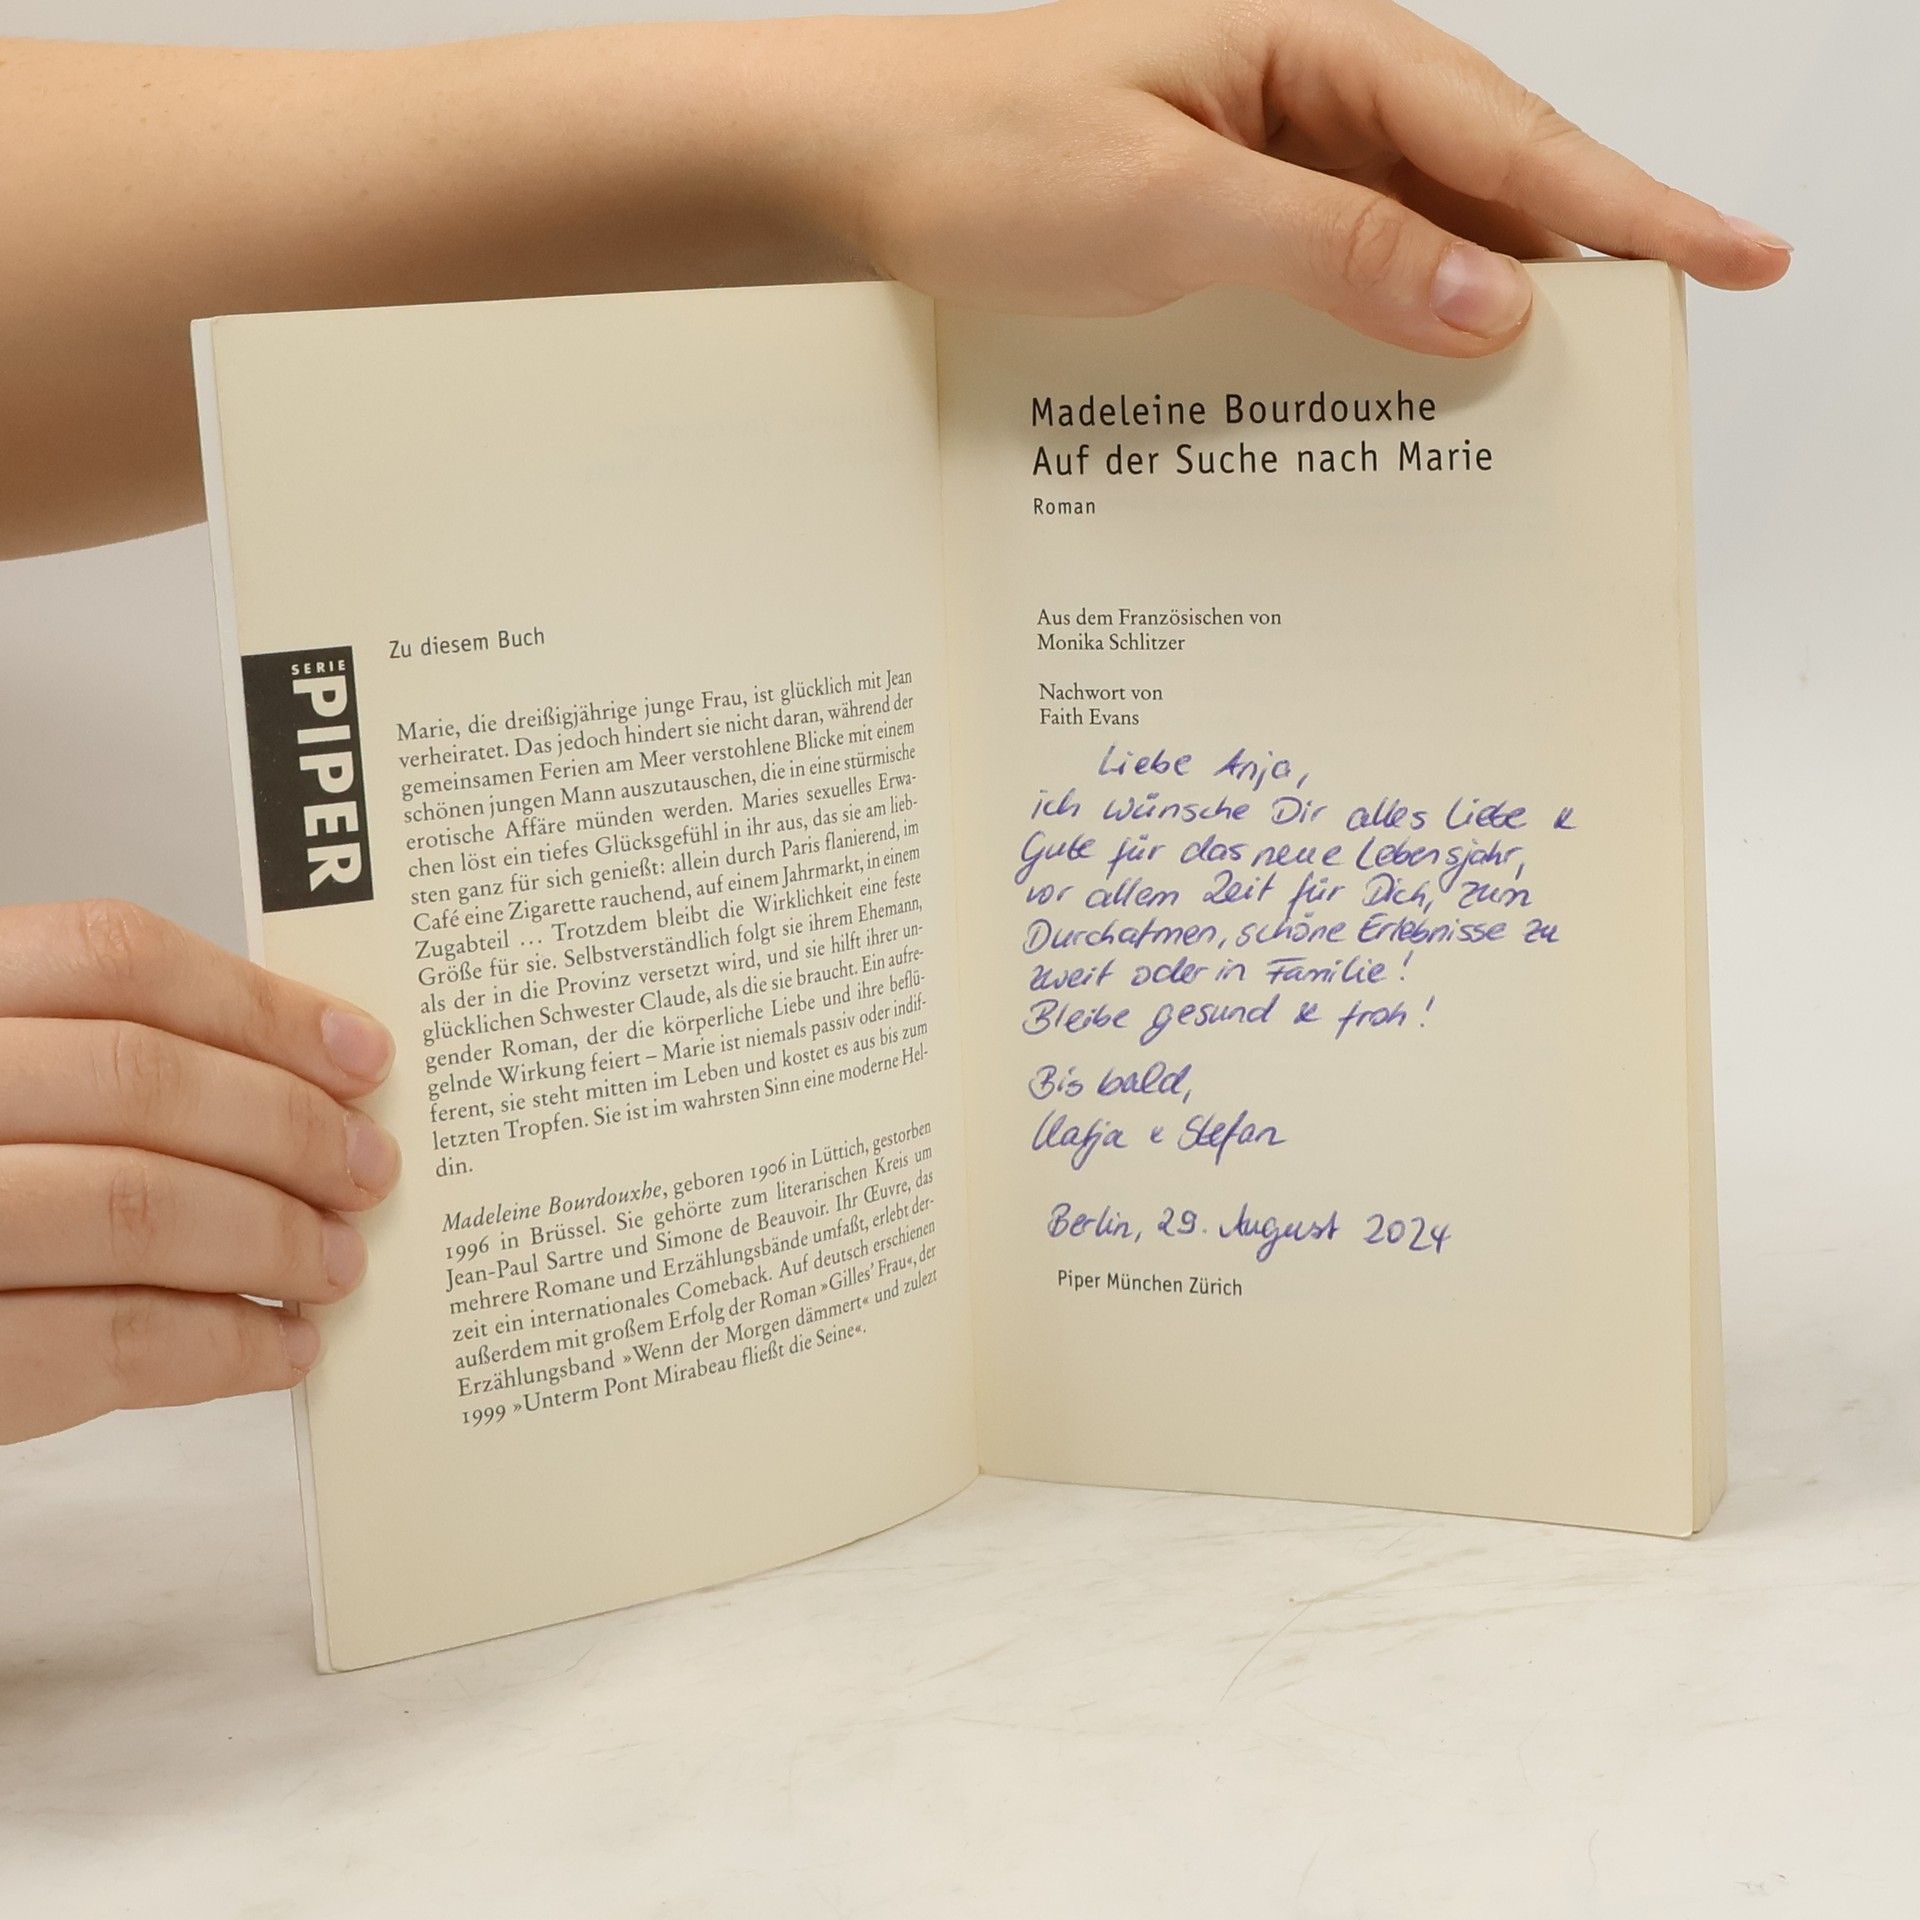 SERIE
PIPER
Zu diesem Buch
Marie, die dreißigjährige junge Frau, ist glücklich mit Jean
verheiratet. Das jedoch hindert sie nicht daran, während der
gemeinsamen Ferien am Meer verstohlene Blicke mit einem
schönen jungen Mann auszutauschen, die in eine stürmische
erotische Affäre münden werden. Maries sexuelles Erwa-
chen löst ein tiefes Glücksgefühl in ihr aus, das sie am lieb-
sten ganz für sich genießt: allein durch Paris flanierend, im
Café eine Zigarette rauchend, auf einem Jahrmarkt, in einem
Zugabteil … Trotzdem bleibt die Wirklichkeit eine feste
Größe für sie. Selbstverständlich folgt sie ihrem Ehemann,
als der in die Provinz versetzt wird, und sie hilft ihrer un-
glücklichen Schwester Claude, als die sie braucht. Ein aufre-
gender Roman, der die körperliche Liebe und ihre beflü-
gelnde Wirkung feiert – Marie ist niemals passiv oder indif-
ferent, sie steht mitten im Leben und kostet es aus bis zum
letzten Tropfen. Sie ist im wahrsten Sinn eine moderne Hel-
din.
Madeleine Bourdouxhe, geboren 1906 in Lüttich, gestorben
1996 in Brüssel. Sie gehörte zum literarischen Kreis um
Jean-Paul Sartre und Simone de Beauvoir. Ihr Œuvre, das
mehrere Romane und Erzählungsbände umfaßt, erlebt der-
zeit ein internationales Comeback. Auf deutsch erschienen
außerdem mit großem Erfolg der Roman »Gilles' Frau«, der
Erzählungsband »Wenn der Morgen dämmert« und zulezt
1999 »Unterm Pont Mirabeau fließt die Seine«.
Madeleine Bourdouxhe
Auf der Suche nach Marie
Roman
Aus dem Französischen von
Monika Schlitzer
Nachwort von
Faith Evans
Liebe Anja,
ich wünsche Dir alles Liebe &
Gute für das neue Lebensjahr,
vor allem Zeit für Dich, zum
Durchatmen, schöne Erlebnisse zu
zweit oder in Familie!
Bleibe gesund & froh!
Bis bald,
Katja & Stefan
Berlin, 29. August 2024
Piper München Zürich